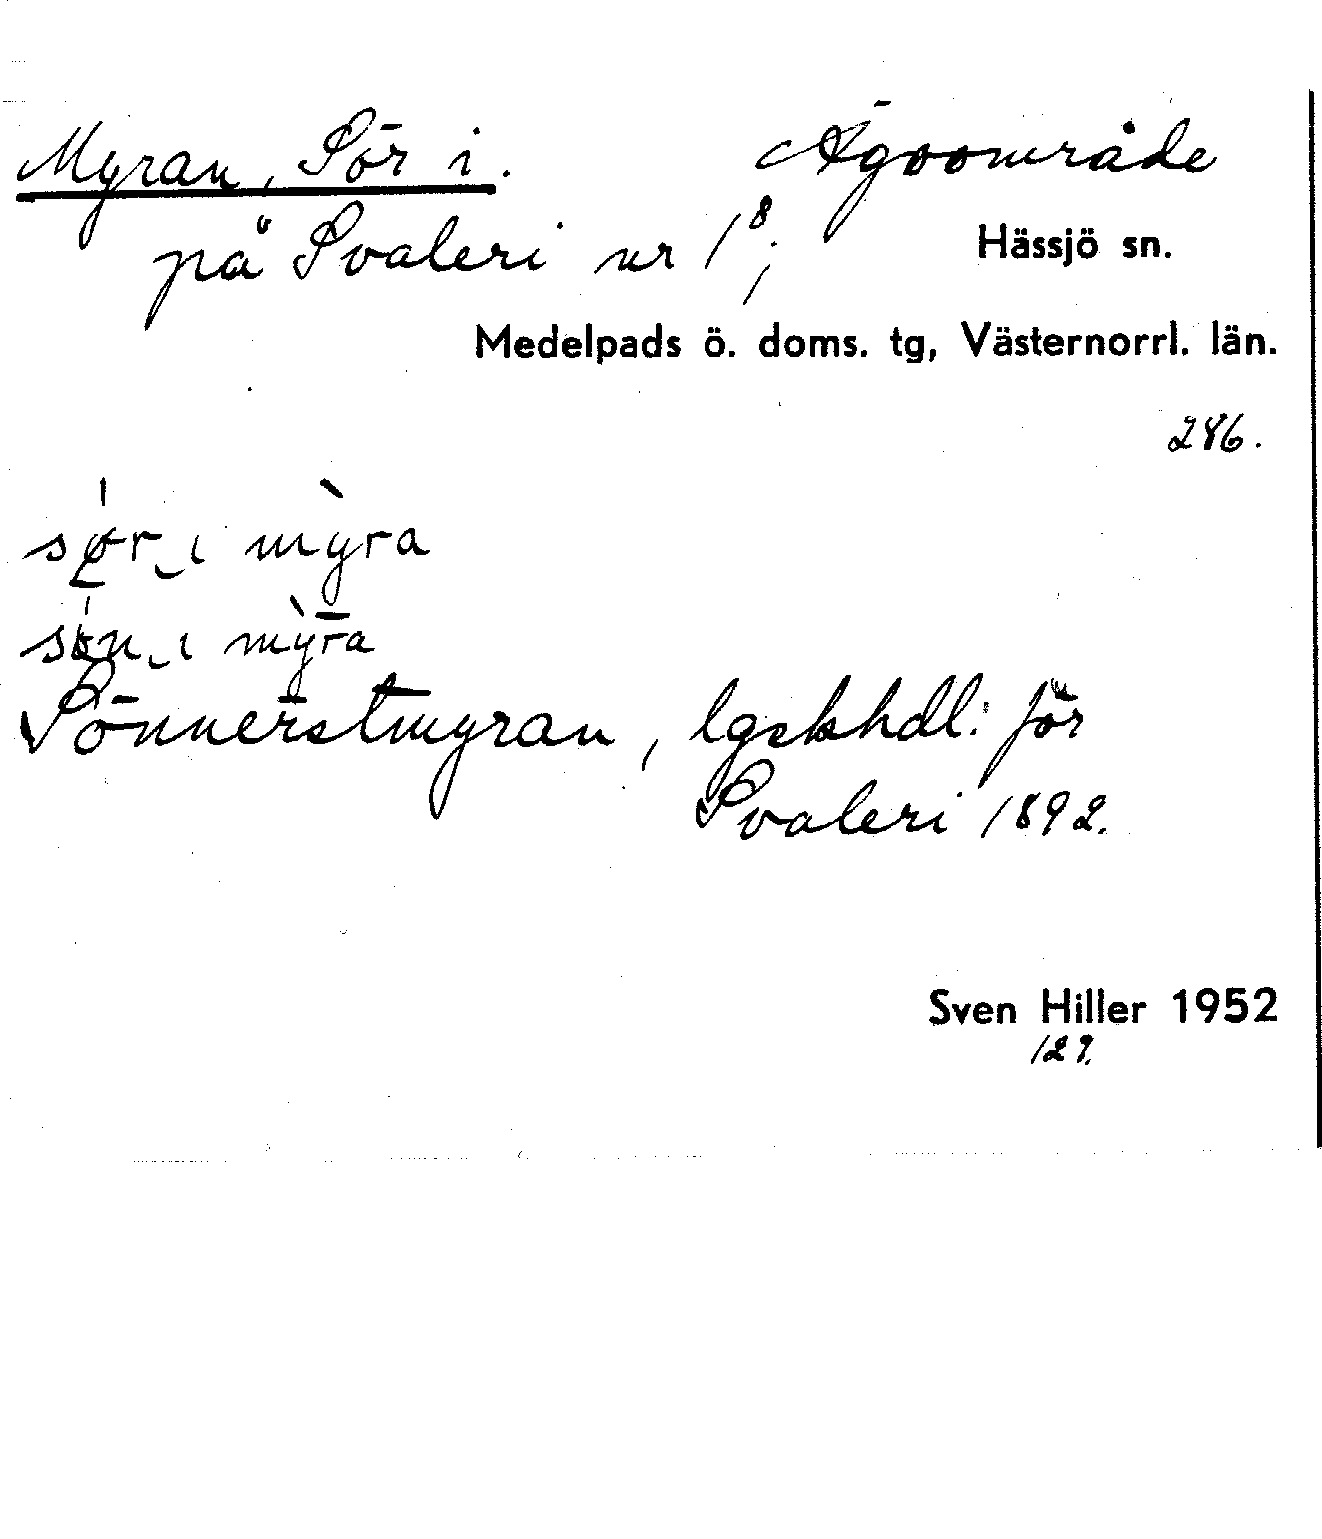 Myran, Sör i. Ägoområde
på Svaleri nr 1⁸;
Hässjö sn.
Medelpads ö. doms. tg, Västernorrl. län.
286.
sør‿ı mỳra
søn‿ı mỳra
Sönnerstmyran, lgskhdl: för
Svaleri 1892.
Sven Hiller 1952